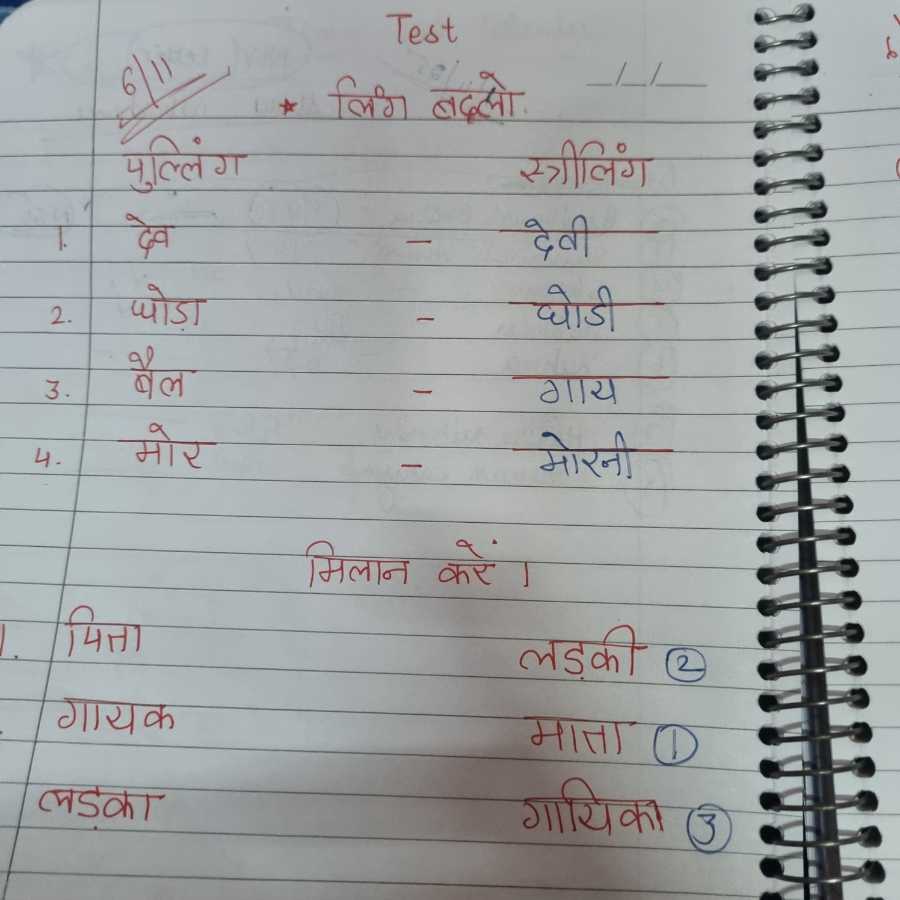 Test
6/11
* लिंग बदलो. __/__/__
पुल्लिंग स्त्रीलिंग
1. देव - देवी
2. घोड़ा - घोडी
3. बैल - गाय
4. मोर - मोरनी
मिलान करें ।
1. पिता लड़की 2
गायक माता 1
लड़का गायिका 3